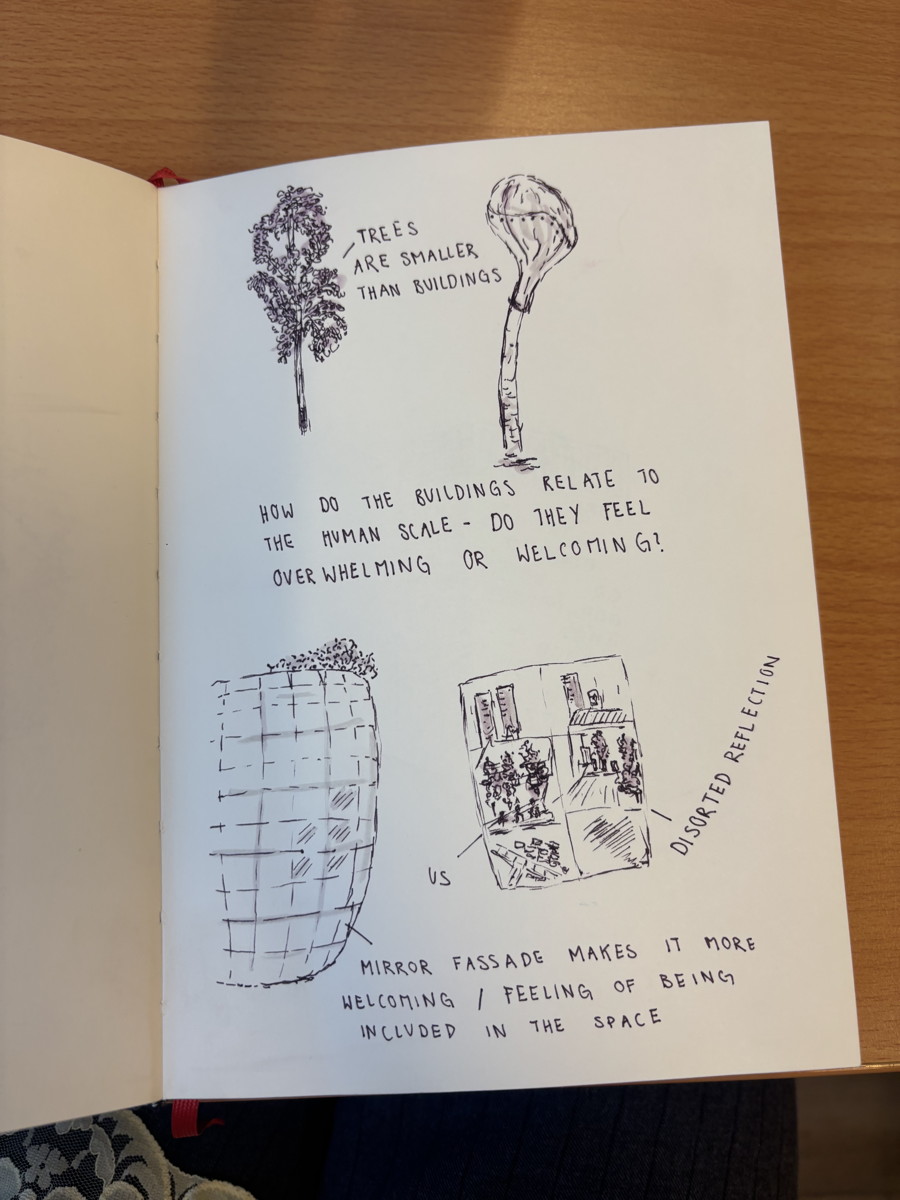 TREES
ARE SMALLER
THAN BUILDINGS
HOW DO THE BUILDINGS RELATE TO
THE HUMAN SCALE - DO THEY FEEL
OVERWHELMING OR WELCOMING?
DISORTED REFLECTION
US
MIRROR FASSADE MAKES IT MORE
WELCOMING / FEELING OF BEING
INCLUDED IN THE SPACE